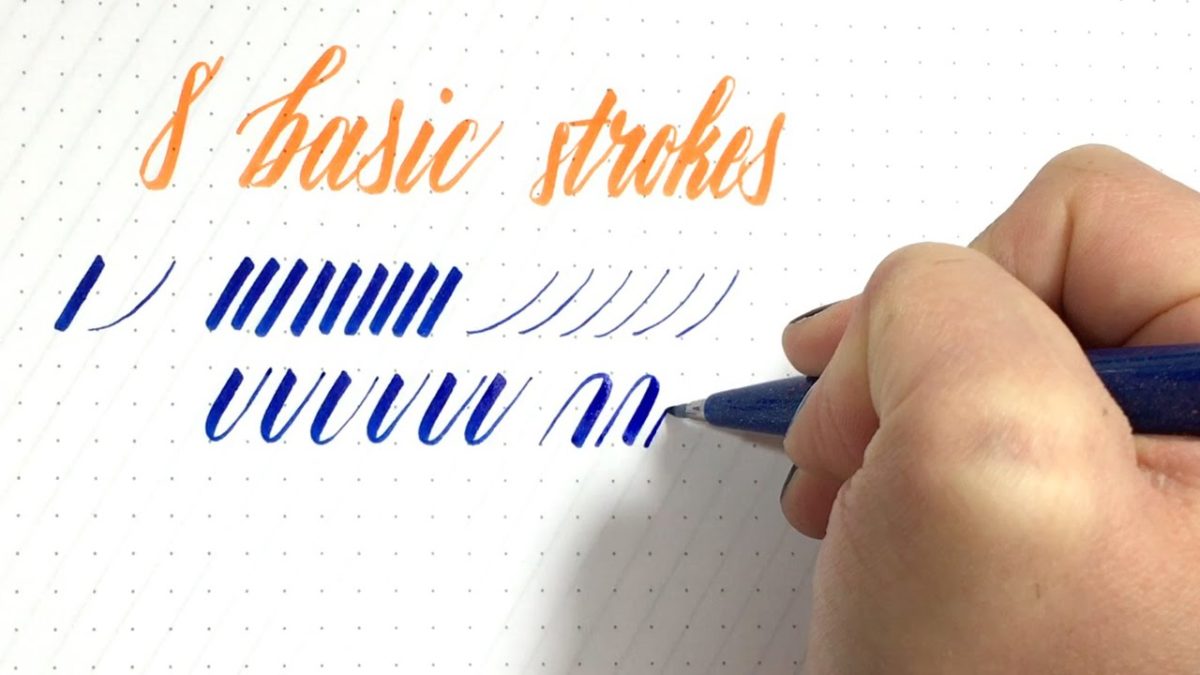 8 basic strokes